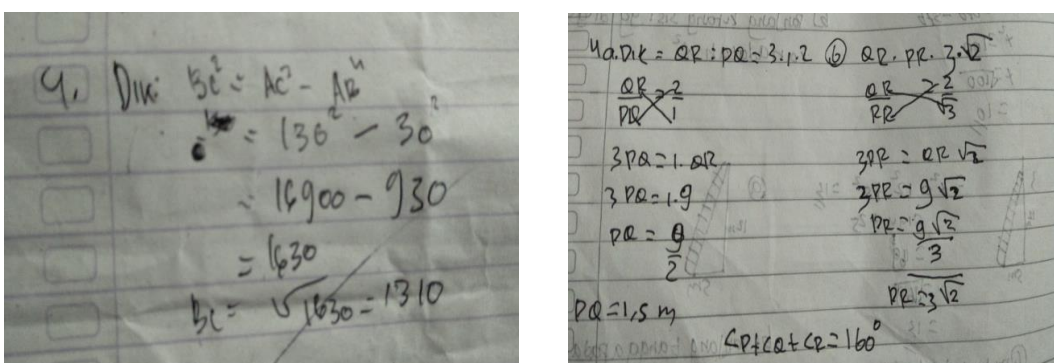 4. Dik: BC² = AC² - AB⁴
= 130² - 30²
= 16900 - 930
= 1630
BC = √1630 = 1310
4a. Dik = QR : PQ = 3:1.2
QR/PQ = 2/1
3PQ = 1.QR
3PQ = 1.9
PQ = 9/2
PQ = 1,5 m
⑥ QR. PR. 3.√2
QR/PR = 2/√3
3PR = QR √2
3PR = 9√2
PR = 9√2/3
PR = 3√2
∠P+∠Q+∠R = 160°